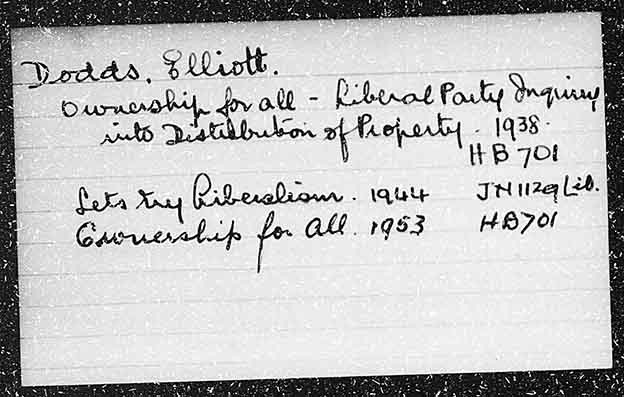 Dodds, Elliott.
Ownership for all - Liberal Party Inquiry
into Distribution of Property. 1938.
HB 701
Lets try Liberalism. 1944 JN1129 Lib.
Ownership for All. 1953 HB701